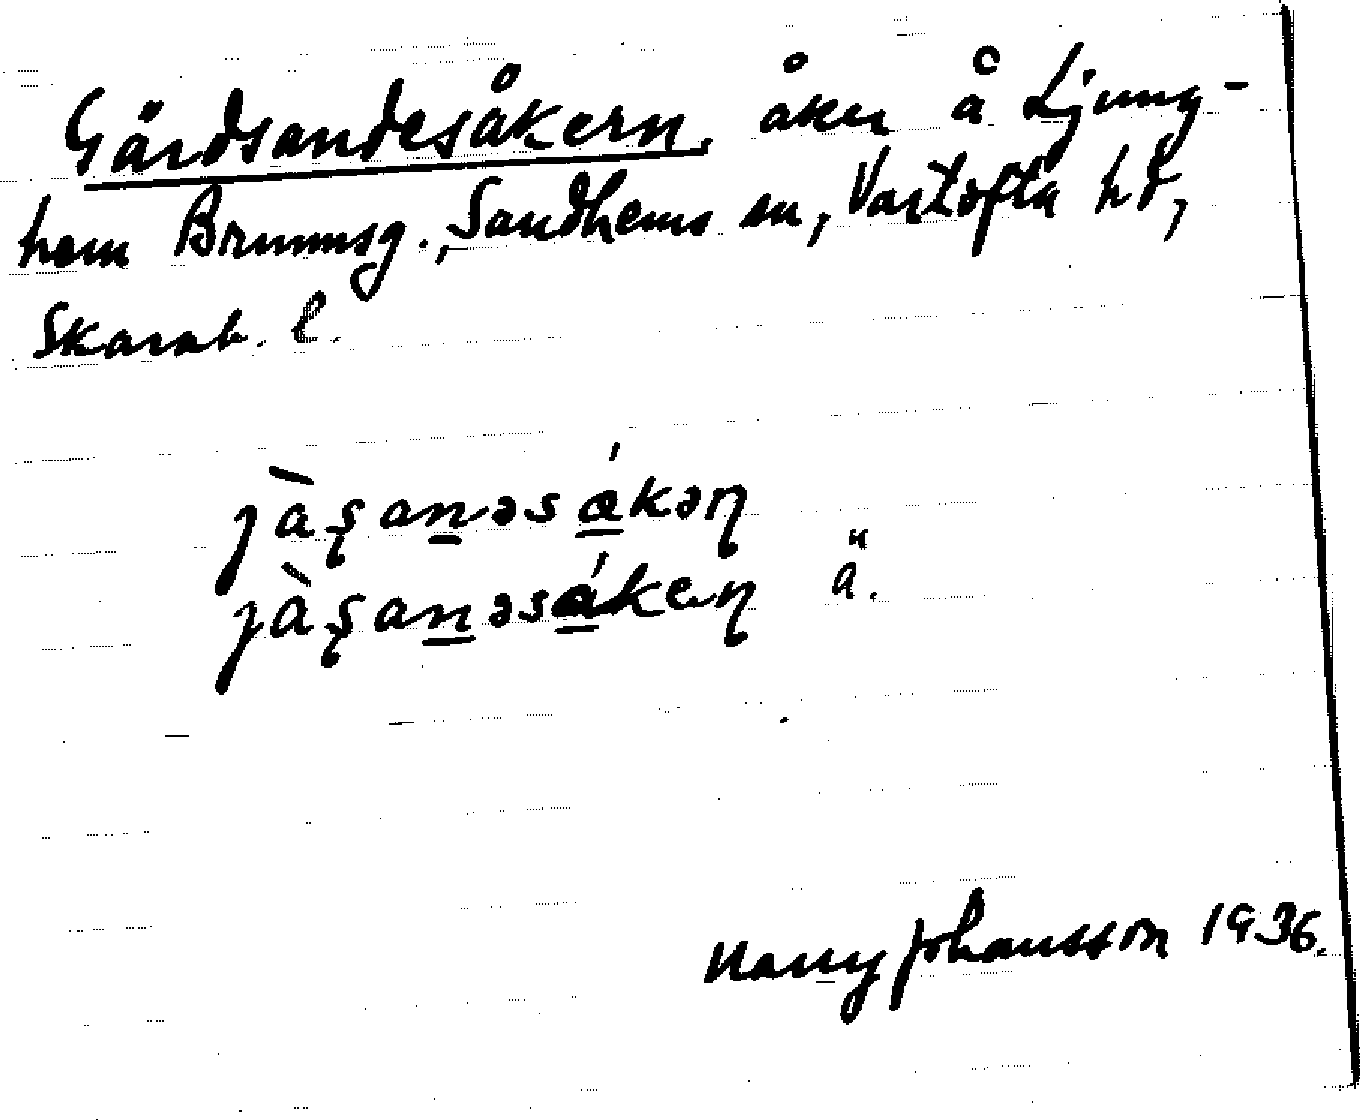 Gärdsandesåkern, åker å Ljung-
hem Brunnsg., Sandhems sn, Vartofta hd,
Skarab. l.
jàʂanəsákəɳ
jàʂanəsákeɳ ä.
Harry Johansson 1936.